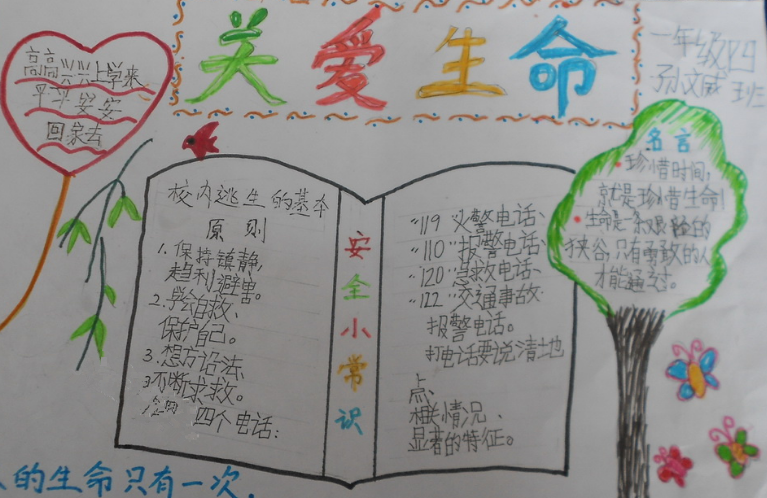 关爱生命
一年级四班
孙文威
高高兴兴上学来
平平安安
回家去
校内逃生的基本
原则
1.保持镇静,
趋利避害。
2.学会自救、
保护自己。
3.想方设法、
不断求救。
四个电话:
安全小常识
"119"火警电话、
"110"报警电话、
"120"急救电话、
"122"交通事故
报警电话。
打电话要说清地
点、
相关情况、
显著的特征。
名言
珍惜时间,
就是珍惜生命!
生命是一条艰险的
狭谷,只有勇敢的人
才能通过。
人的生命只有一次,